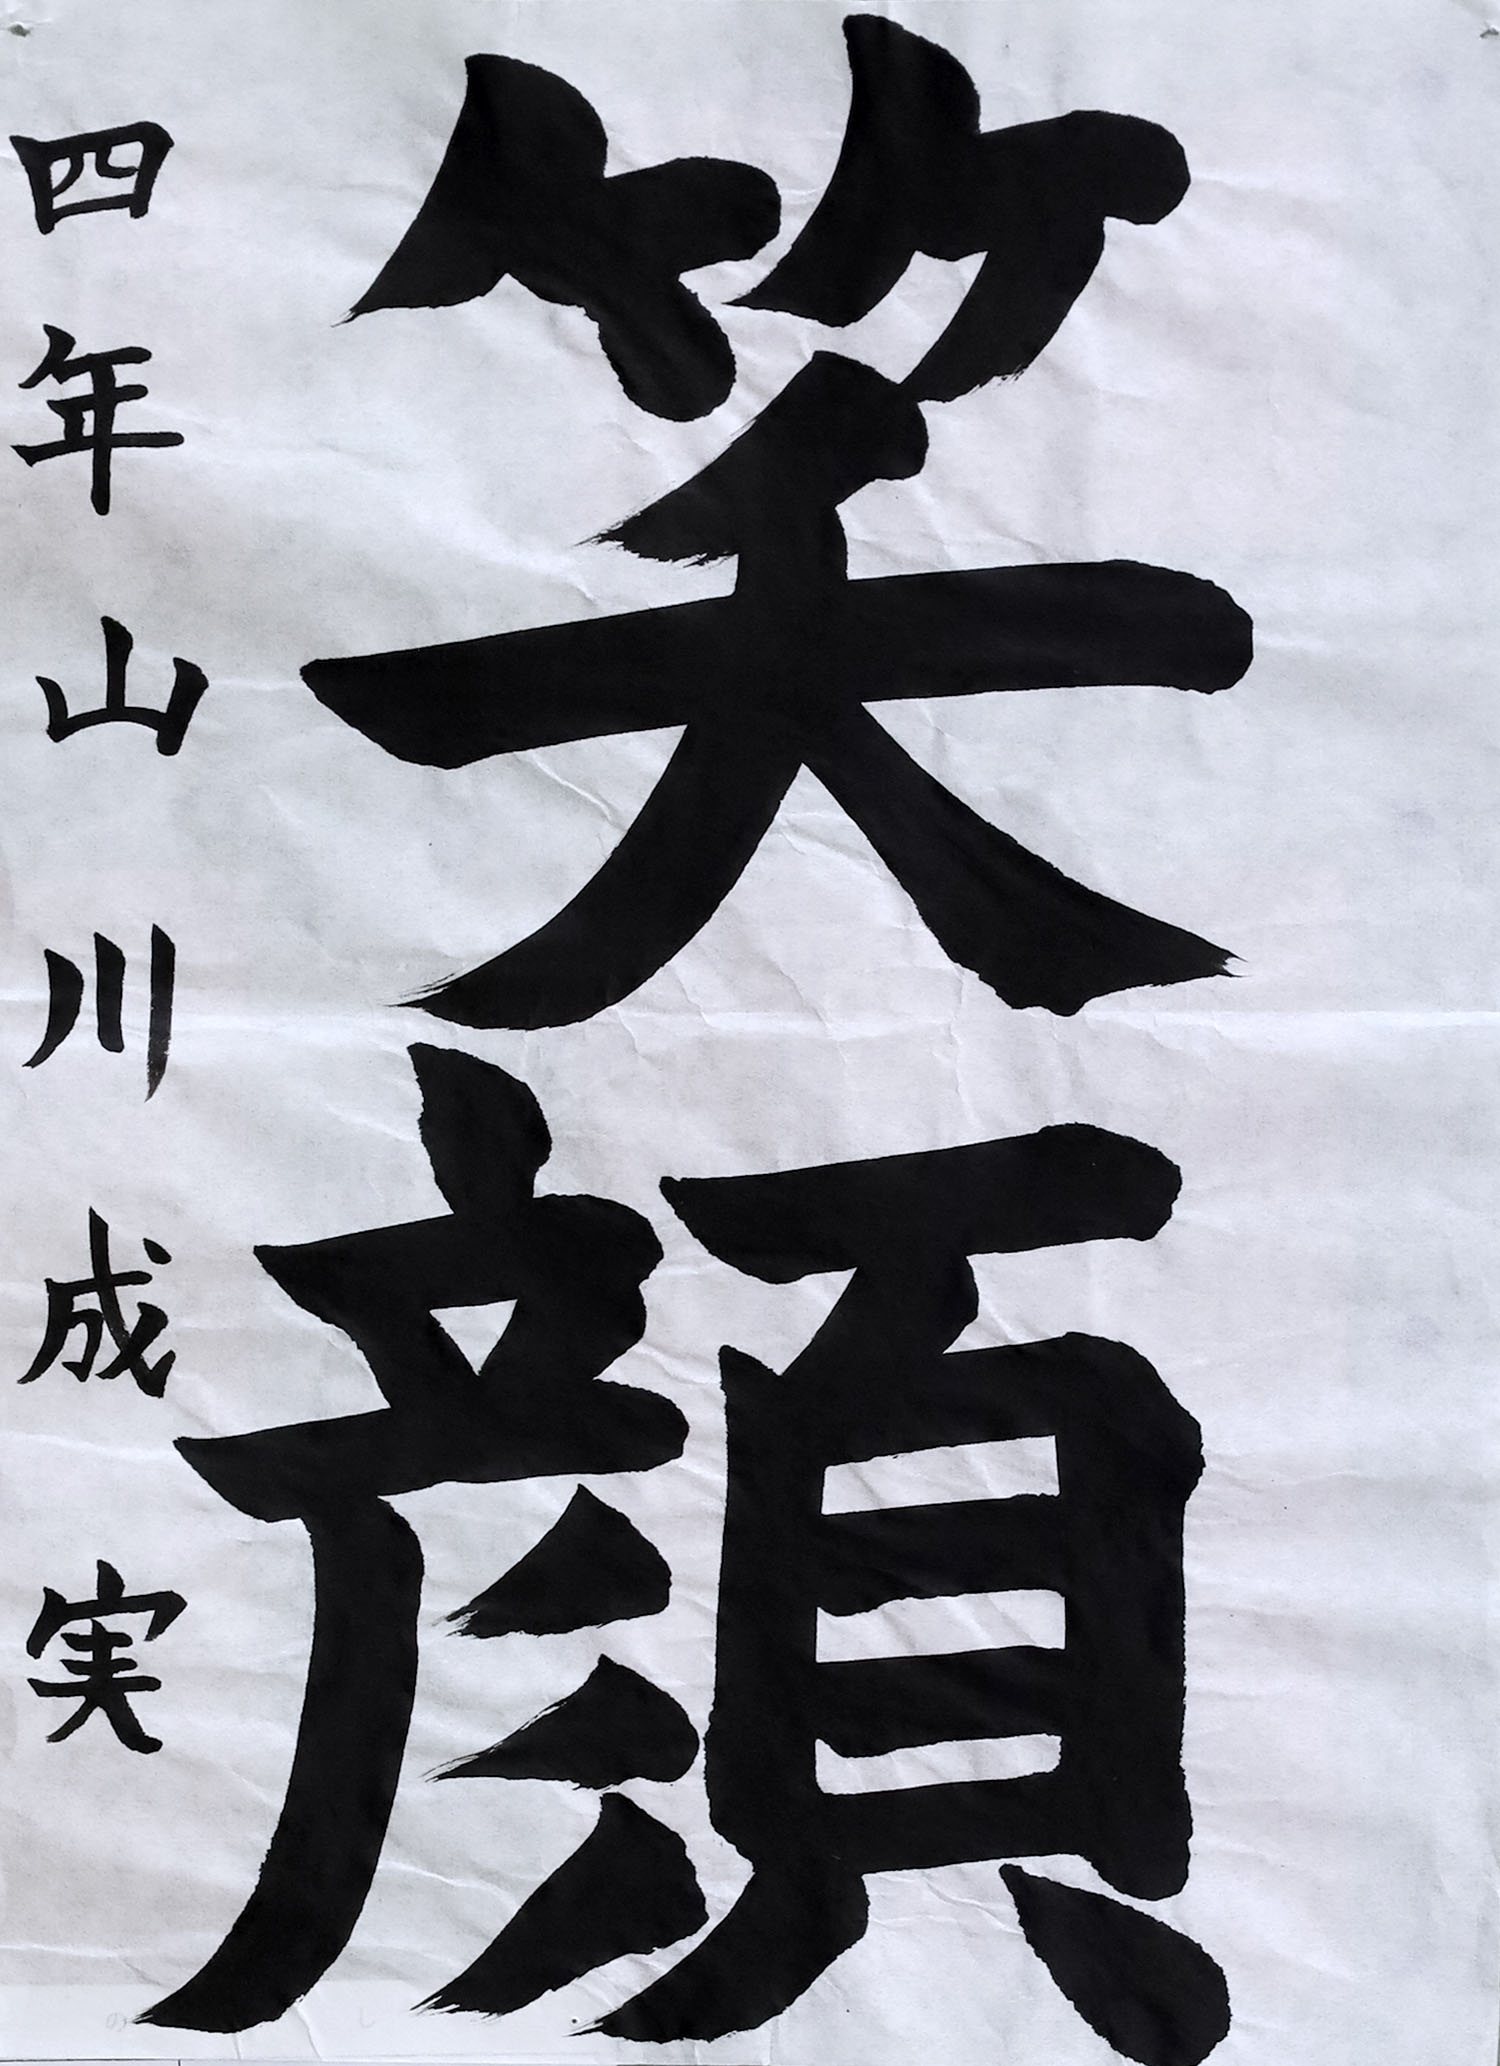 笑顔
四年山川成実